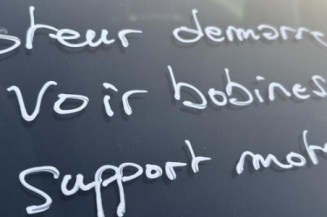 steur demarre
Voir bobines
support mot